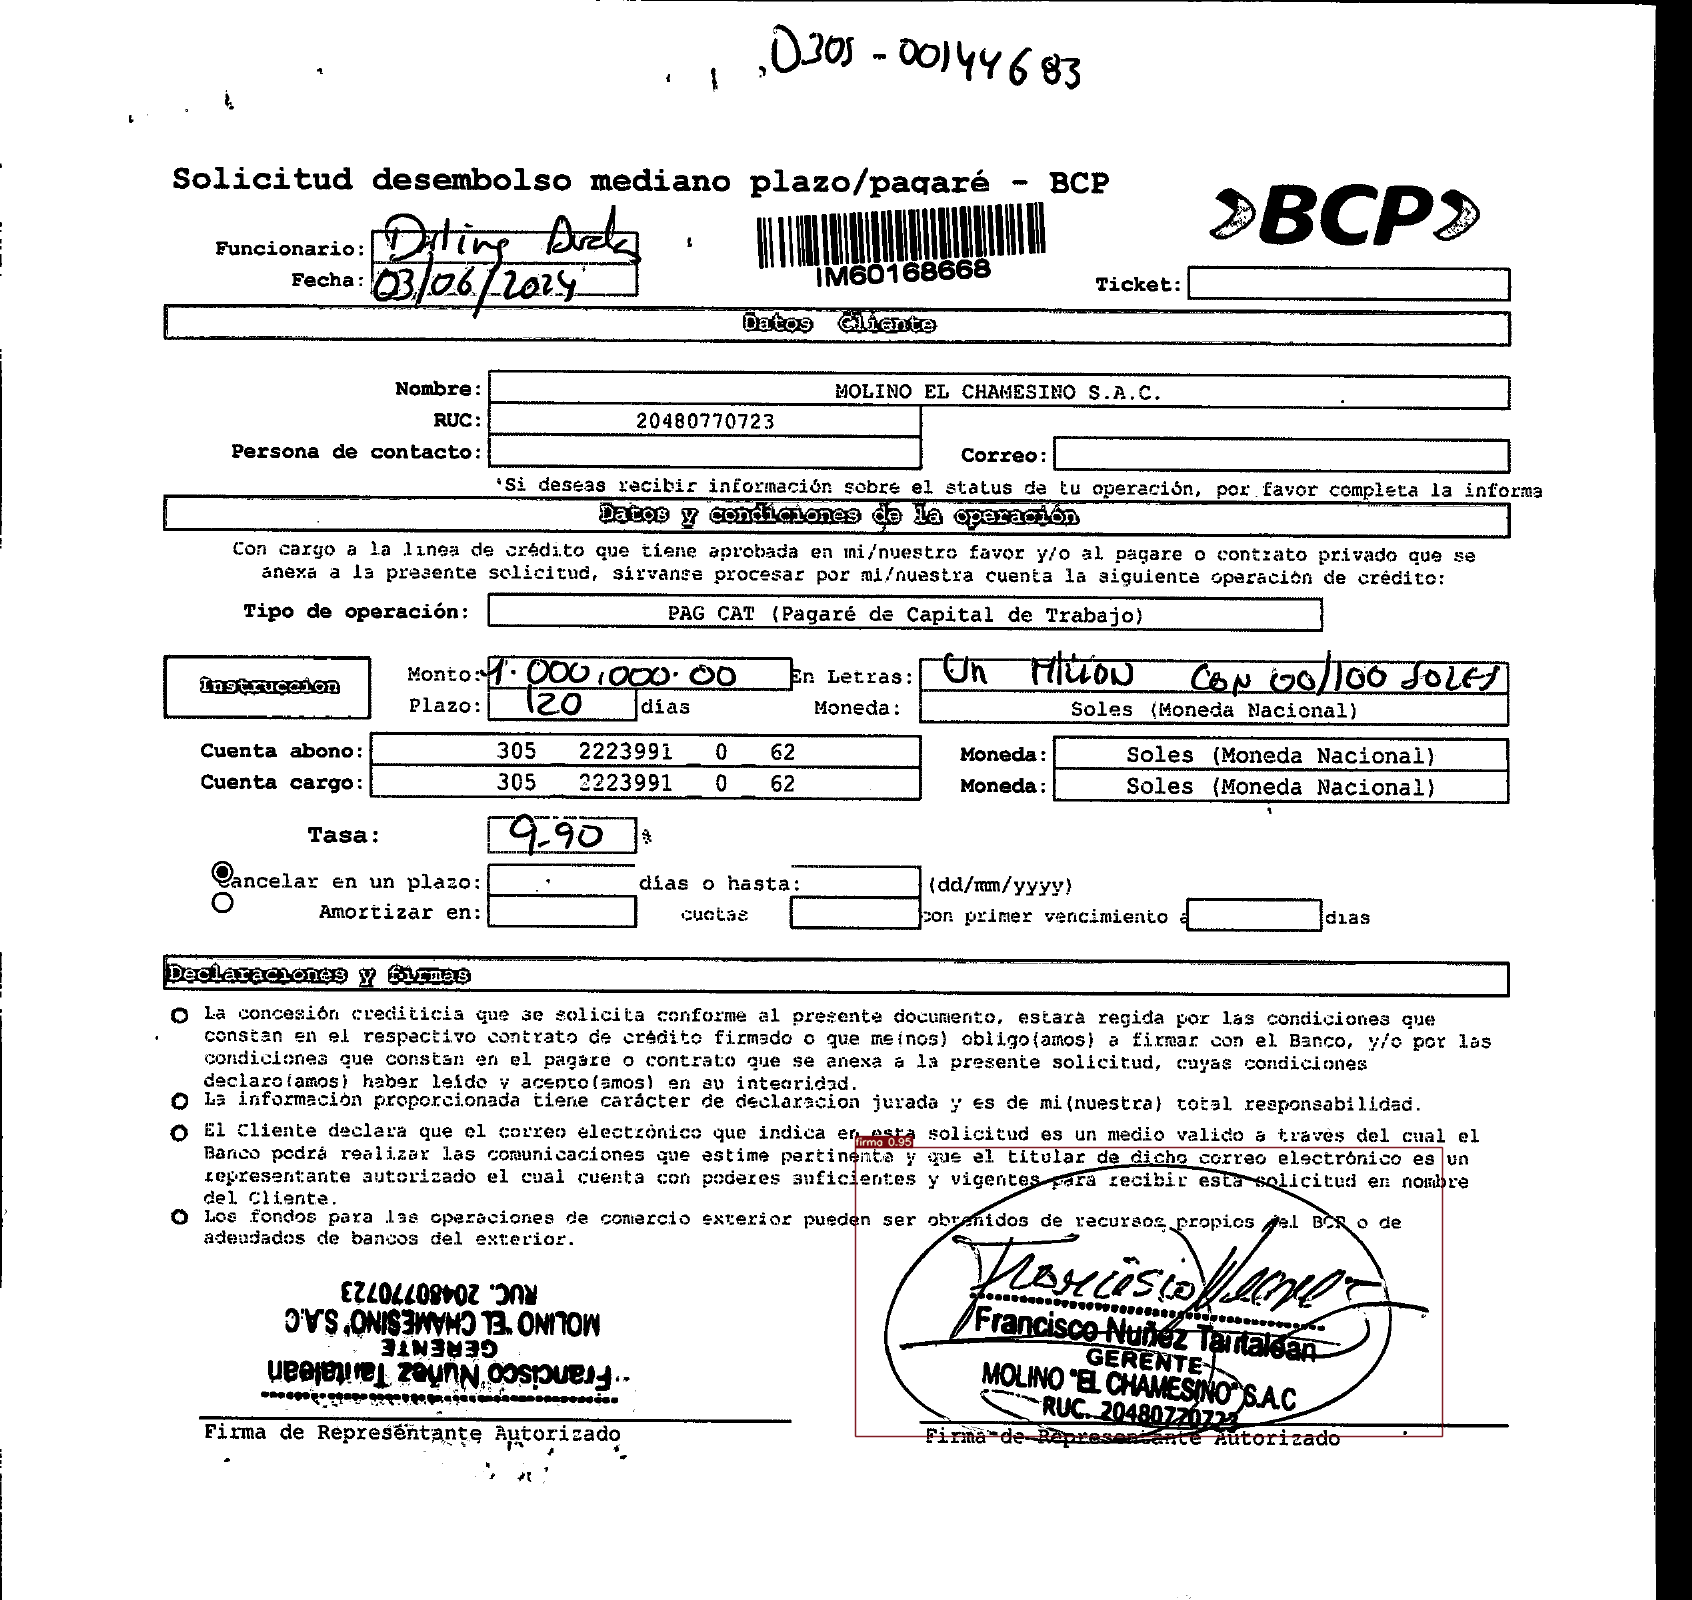 D305-00144683
Solicitud desembolso mediano plazo/pagaré - BCP
>BCP>
Funcionario:
Fecha: 03/06/2024
IM60168668
Ticket:
Datos Cliente
Nombre: MOLINO EL CHAMESINO S.A.C.
RUC: 20480770723
Persona de contacto: Correo:
*Si deseas recibir información sobre el status de tu operación, por favor completa la informa
Datos y condiciones de la operación
Con cargo a la linea de crédito que tiene aprobada en mi/nuestro favor y/o al pagare o contrato privado que se
anexa a la presente solicitud, sirvanse procesar por mi/nuestra cuenta la siguiente operación de crédito:
Tipo de operación: PAG CAT (Pagaré de Capital de Trabajo)
Instruccion
Monto: 1.000,000.00 En Letras: Un MILLON CON 00/100 SOLES
Plazo: 120 días Moneda: Soles (Moneda Nacional)
Cuenta abono: 305 2223991 0 62 Moneda: Soles (Moneda Nacional)
Cuenta cargo: 305 2223991 0 62 Moneda: Soles (Moneda Nacional)
Tasa: 9.90 %
Cancelar en un plazo: días o hasta: (dd/mm/yyyy)
Amortizar en: cuotas con primer vencimiento a dias
Declaraciones y firmas
La concesión crediticia que se solicita conforme al presente documento, estará regida por las condiciones que
constan en el respectivo contrato de crédito firmado o que me(nos) obligo(amos) a firmar con el Banco, y/o por las
condiciones que constan en el pagare o contrato que se anexa a la presente solicitud, cuyas condiciones
declaro(amos) haber leído y acepto(amos) en su integridad.
La información proporcionada tiene carácter de declaracion jurada y es de mi(nuestra) total responsabilidad.
El Cliente declara que el correo electrónico que indica en esta solicitud es un medio valido a través del cual el
Banco podrá realizar las comunicaciones que estime pertinente y que el titular de dicho correo electrónico es un
representante autorizado el cual cuenta con poderes suficientes y vigentes para recibir esta solicitud en nombre
del Cliente.
Los fondos para las operaciones de comercio exterior pueden ser obtenidos de recursos propios del BCP o de
adeudados de bancos del exterior.
firma 0.95
Francisco Nuñez Tantalean
GERENTE
MOLINO "EL CHAMESINO" S.A.C
RUC. 20480770723
Firma de Representante Autorizado
Francisco Nuñez Tantalean
GERENTE
MOLINO "EL CHAMESINO" S.A.C
RUC. 20480770723
Firma de Representante Autorizado